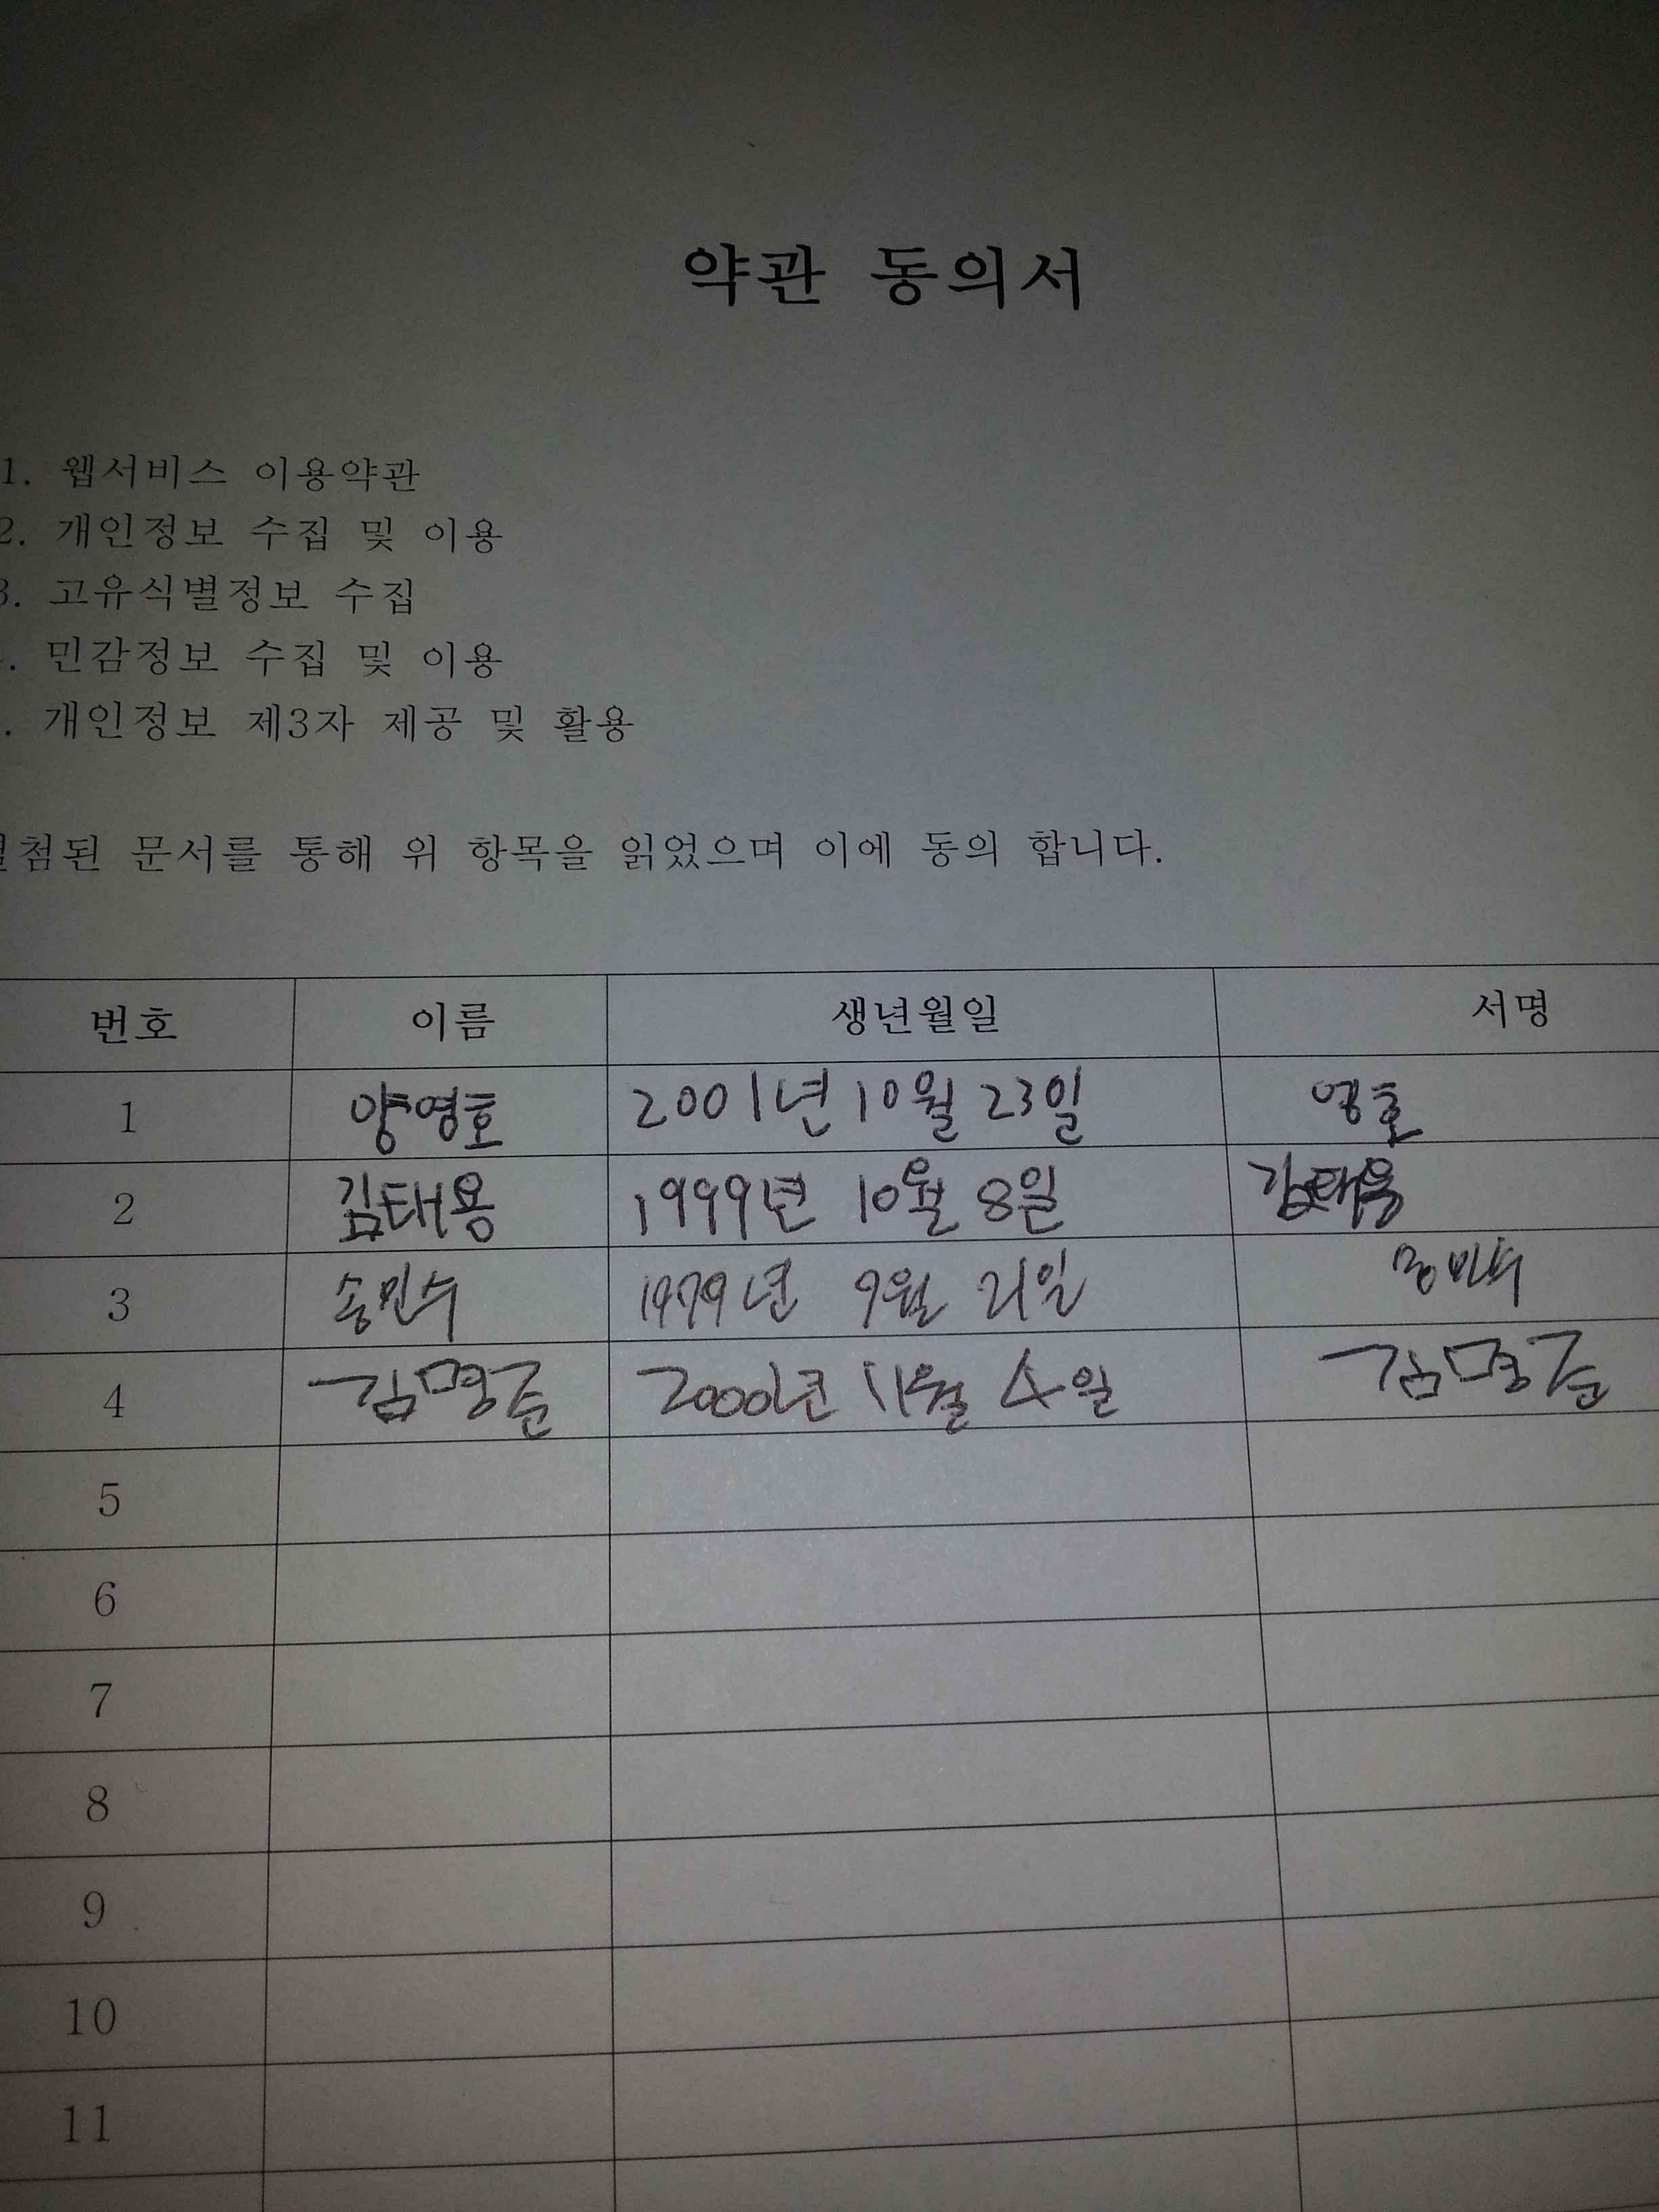 약관 동의서
1. 웹서비스 이용약관
2. 개인정보 수집 및 이용
3. 고유식별정보 수집
. 민감정보 수집 및 이용
. 개인정보 제3자 제공 및 활용
첨된 문서를 통해 위 항목을 읽었으며 이에 동의 합니다.
번호 이름 생년월일 서명
1 양영호 2001년 10월 23일 영호
2 김태용 1999년 10월 8일 김태용
3 송민수 1979년 9월 21일 송민수
4 김명준 2000년 11월 4일 김명준
5
6
7
8
9
10
11